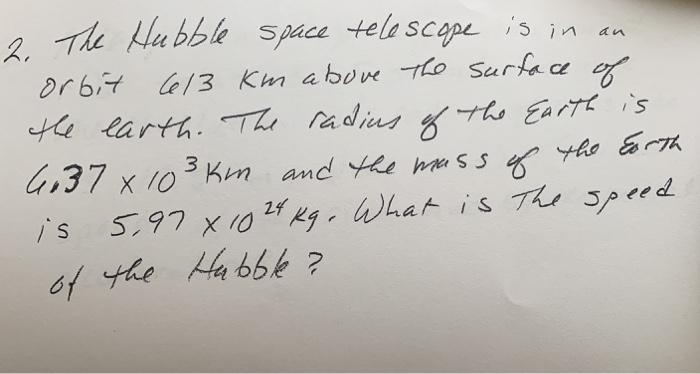 2. The Hubble space telescope is in an
orbit 613 km above the surface of
the earth. The radius of the Earth is
6.37 x 10³ km and the mass of the Earth
is 5.97 x 10²⁴ kg. What is The speed
of the Hubble?